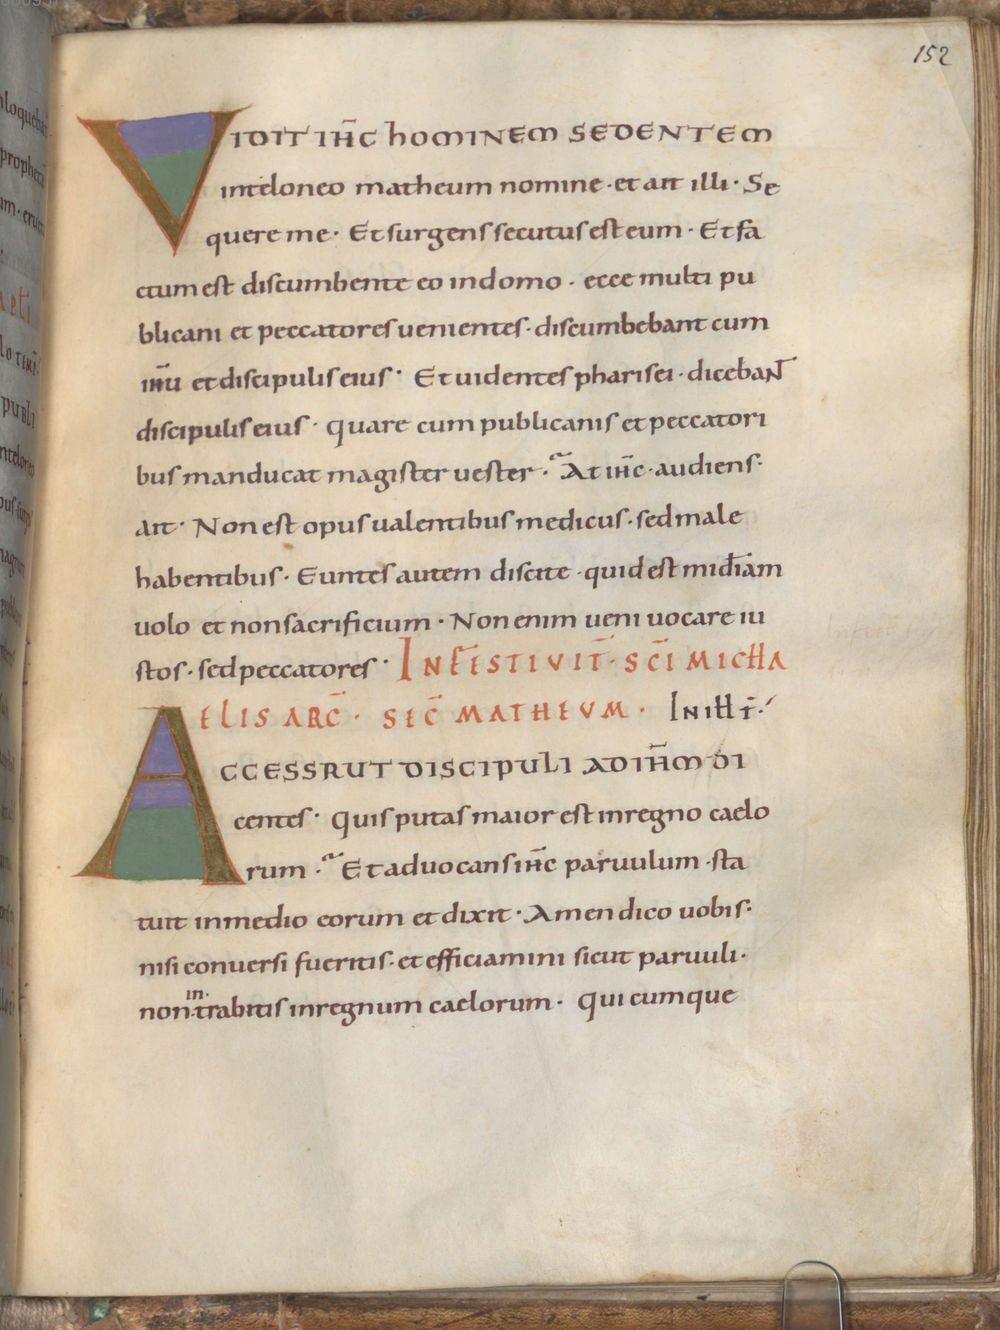 152
VIDIT IH̅C hOMINEM SEDENTEM
inteloneo matheum nomine · et ait illi · Se
quere me · Et surgens secutus est eum · Et fa
ctum est discumbente eo indomo · ecce multi pu
blicani et peccatores uenientes · discumbebant cum
ih̅u et discipulis eius · Et uidentes pharisei · dicebaNT
discipulis eius · quare cum publicanis et peccatori
bus manducat magister uester · At ih̅c · audiens ·
ait · Non est opus ualentibus medicus · sed male
habentibus · Euntes autem discite · quid est mi̅diam
uolo et non sacrificium · Non enim ueni uocare iu
stos · sed peccatores · IN FESTIVIT̅ · SC̅I MICHA
ELIS ARC̅ · SEC̅ MATHEUM · IN ILL T̅ ·
ACCESSRUT DISCIPULI AD IH̅M DI
centes · quis putas maior est inregno caelo
rum · Et aduocans ih̅c paruulum · sta
tuit inmedio eorum et dixit · Amen dico uobis ·
nisi conuersi fueritis · et efficiamini sicut paruuli ·
in ·
non · trabitis inregnum caelorum · qui cumque